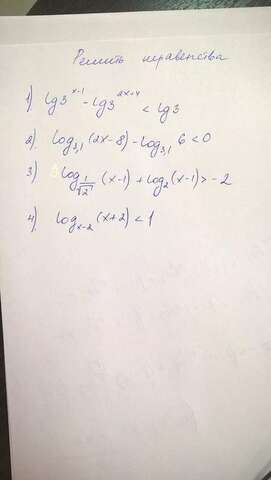 Решить неравенства
1) lg3^(x-1) - lg3^(2x+4) < lg3
2) log_3,1 (2x-8) - log_3,1 6 < 0
3) log_(1/√2) (x-1) + log_2 (x-1) > -2
4) log_(x-2) (x+2) < 1